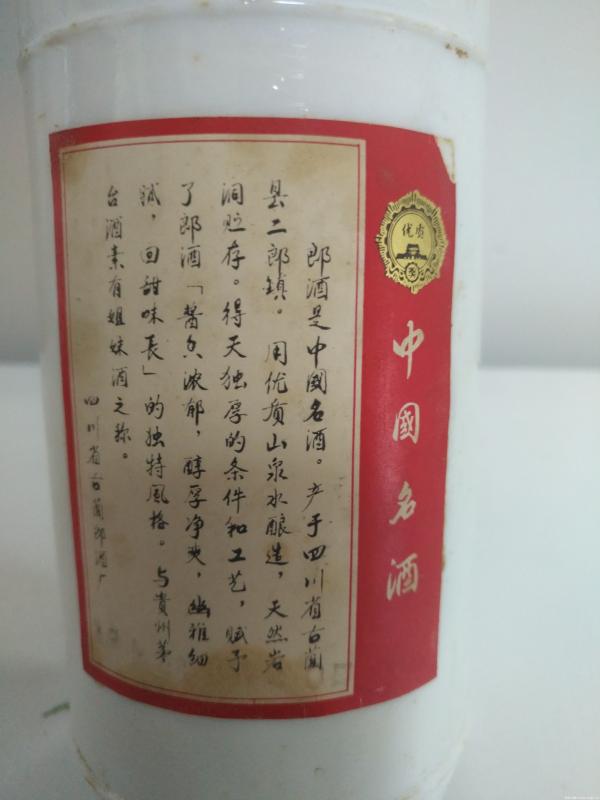 优质
奖
中國名酒
郎酒是中國名酒。产于四川省古蔺
县二郎鎮。用优质山泉水酿造，天然岩
洞贮存。得天独厚的条件和工艺，赋予
了郎酒「醬香浓郁，醇厚净爽，幽雅细
腻，回甜味長」的独特風格。与貴州茅
台酒素有姐妹酒之称。
四川省古蔺郎酒厂